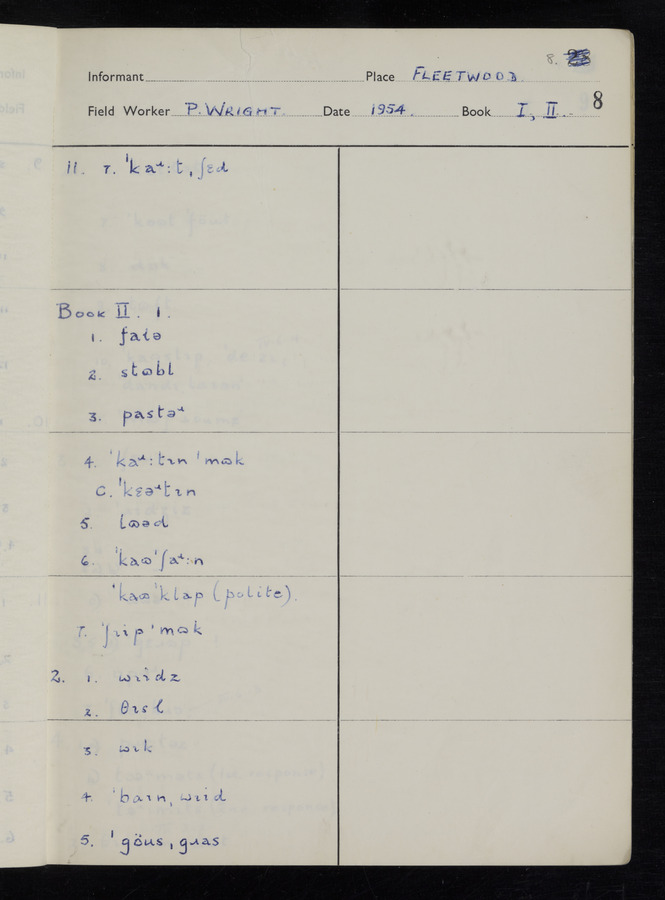 8.
Informant Place FLEETWOOD.
8
Field Worker P. WRIGHT. Date 1954. Book I, II.
11. 7. ˈkaɹːt, ʃɛd
BOOK II. 1.
1. faɪə
2. stɷbl
3. pastəɹ
4. ˈkaɹːtɪn ˈmɷk
C. ˈkɛəɹtɪn
5. lɷəd
6. ˈkaɷˈʃaɹːn
ˈkaɷˈklap (polite).
7. ˈʃɪip ˈmɷk
2. 1. wɪidz
2. θɪsl
3. wɪk
4. ˈbaɪn, wɪid
5. ˈgöus, gɹas